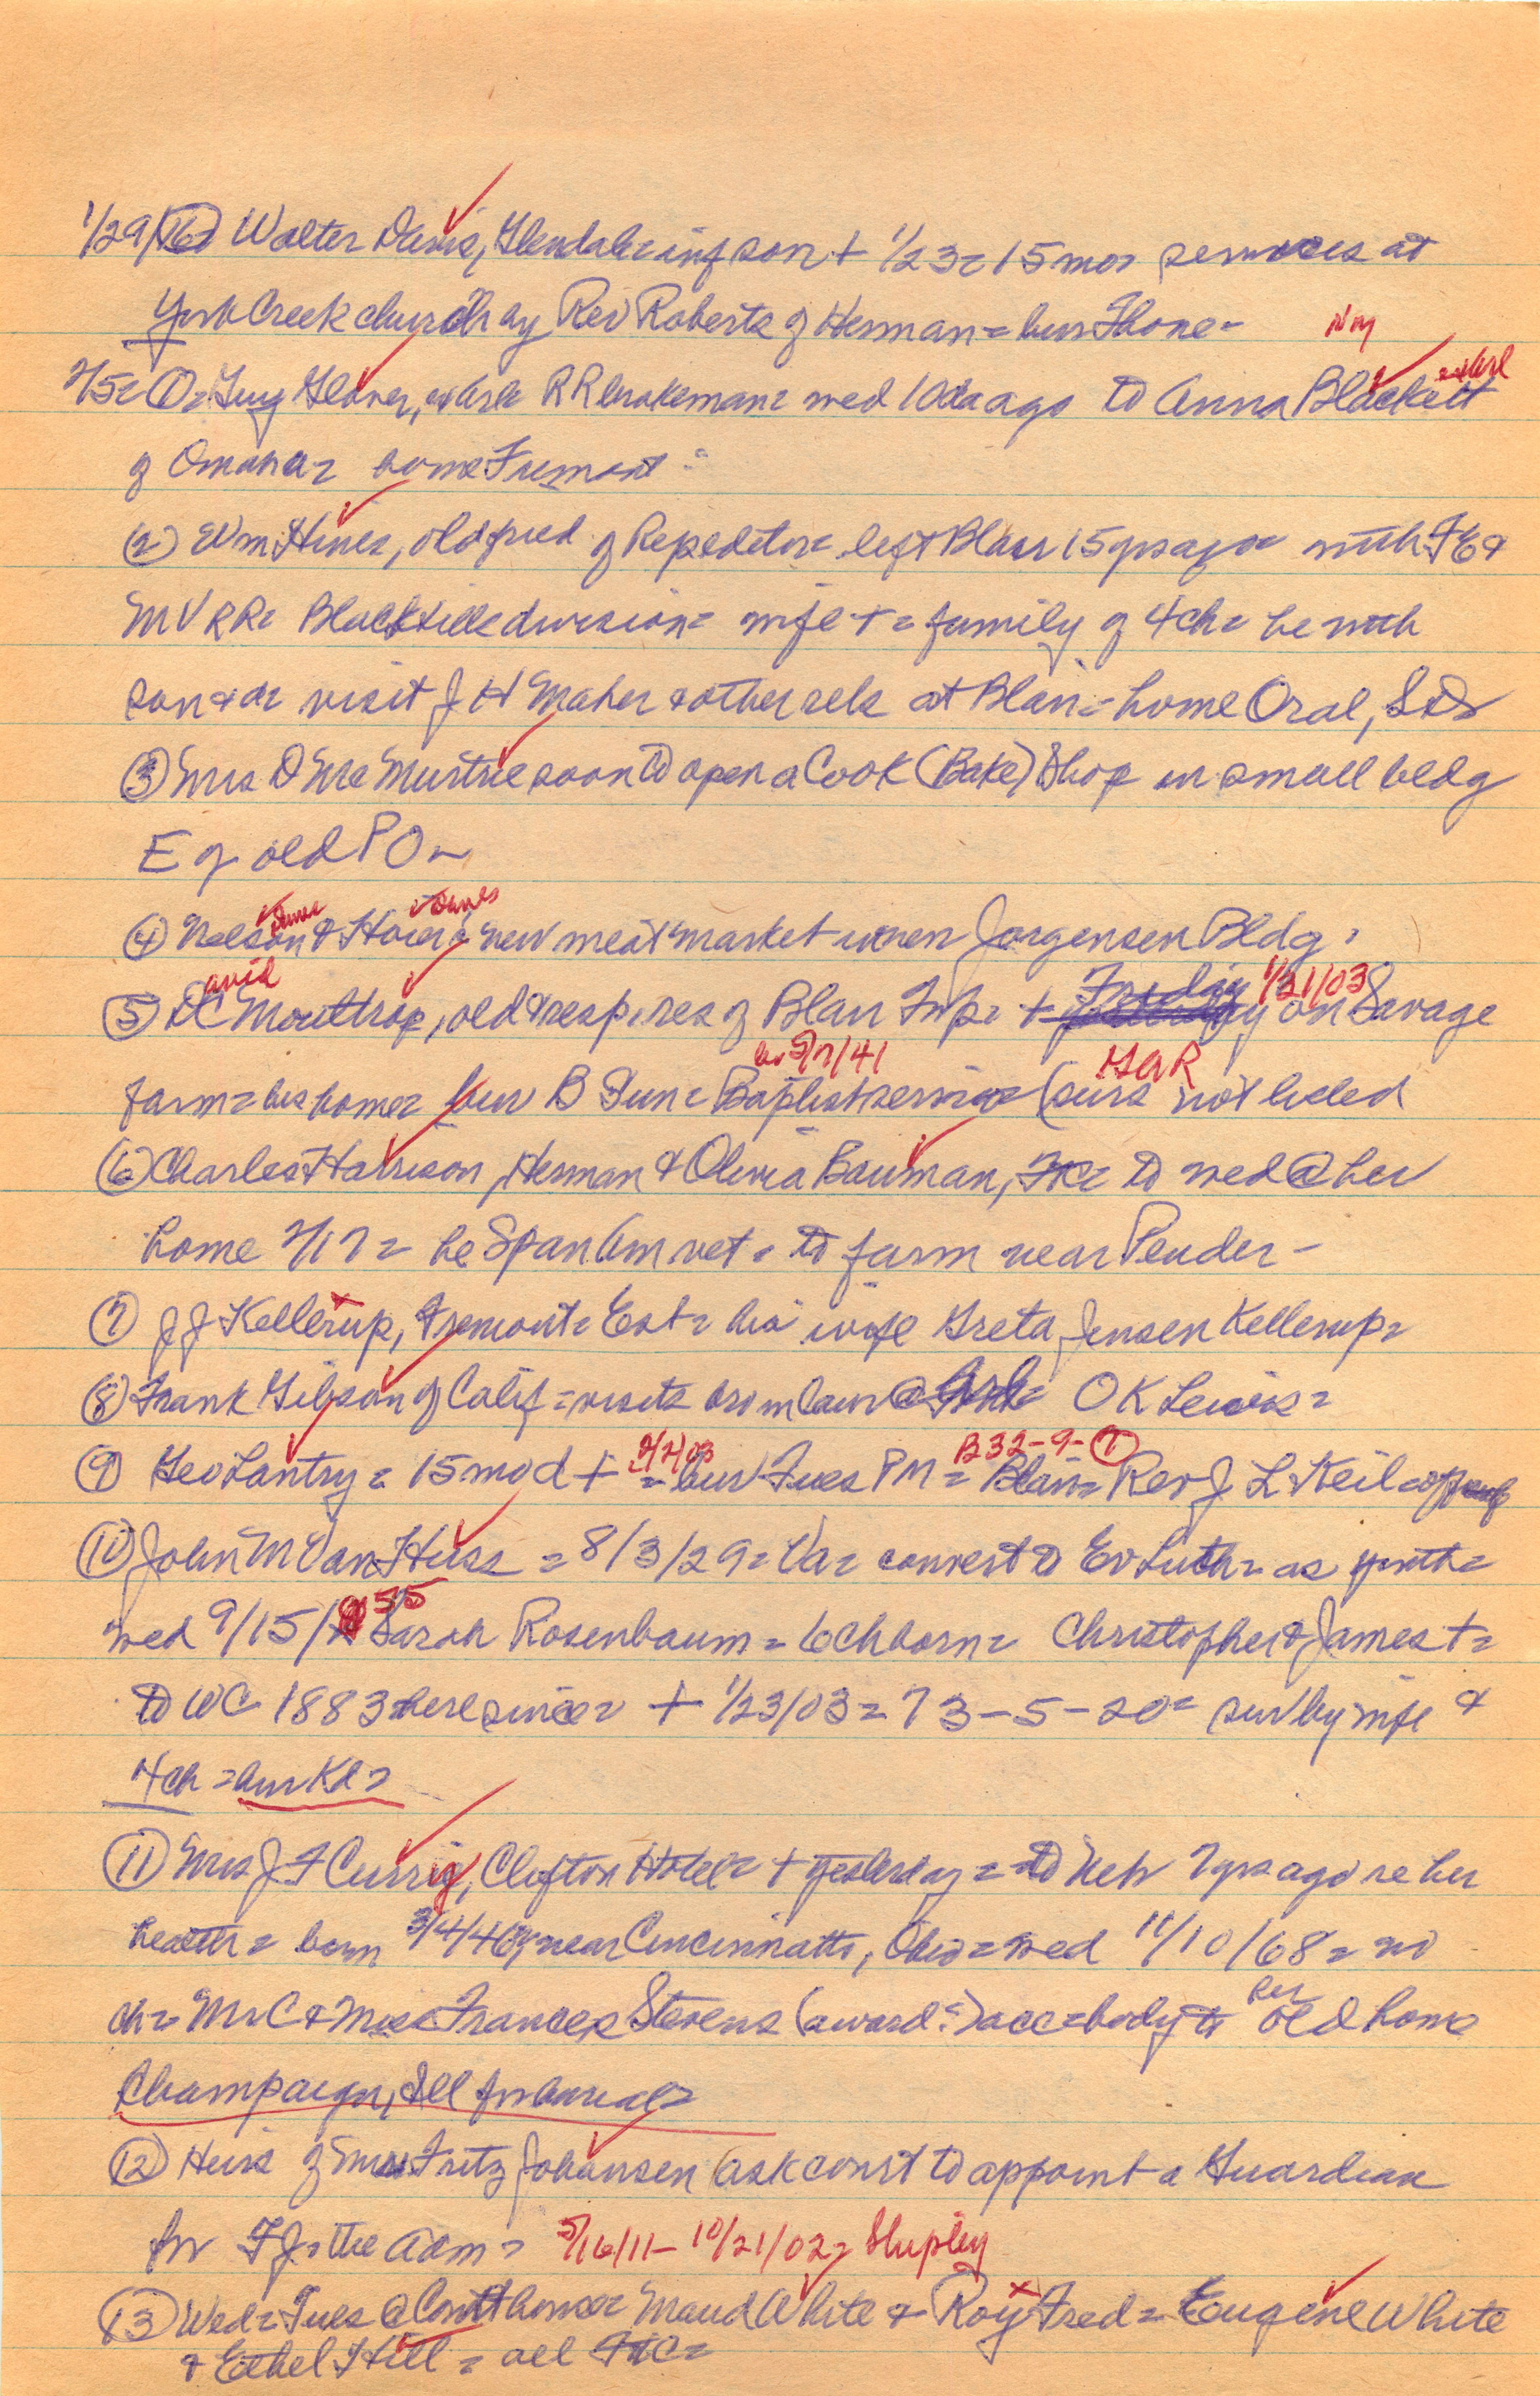 1/29/(16) Walter Davis, Glendale = inf son + 1/23 = 15 mos services at
York Creek church by Rev Roberts of Herman = bur Thone =
Ney
2/5 = (1) = Guy Glover, exArl = RR brakeman = wed 10 da ago to Anna Blackett exArl
of Omaha = home Fremont =
(2) Wm Hines, old fried of Repeditor = left Blair 15 yrs ago = with FE &
MV RR = Black Hills division = wife + = family of 4 ch = he with
son & dr visit J H Maher & other rels at Blair = home Oral, SD
(3) Mrs D McMurtrie soon to open a Cook (Bake) Shop in small bldg
E of old PO =
(4) Nelson & Hoier's new meat market in new Jorgensen Bldg =
avid
(5) DC Mouttrop, old & resp. res of Blair Twp = + Friday 1/31/03 on Savage
b 5/7/41 GAR
farm = his home = bur B Sun = Baptist service = (survs not listed
(6) Charles Harrison, Herman & Olivia Bauman, FtC = to wed @ her
home 2/17 = he Span Am vet = to farm near Pender -
(7) J J Kellerup, Fremont = Est = his wife Greta Jensen Kellerup =
(8) Frank Gibson of Calif = visits bro in law @ Arl = O K Lewis =
(9) Geo Lantry = 15 mo d + 2/2/03 = bur Tues PM = Blair = B32-9-(7) Rev J L Keil
(10) John M Van Huss = 8/3/29 = Va = convert to Ev Luth = as youth =
wed 9/15/55 Sarah Rosenbaum = 6 ch born = Christopher & James + =
to WC 1883 here since = + 1/23/03 = 73-5-20 = surv by wife &
4 ch = bur Kd =
(11) Mrs J F Currig, Clifton Hotel = + yesterday = to Neb 7 yrs ago re her
health = born 3/4/46 near Cincinnatti, Ohio = wed 11/10/68 = no
ch = Mr C & Miss Frances Stevens (a ward?) acc = body to her old home
Champaign, Ill for burial =
(12) Heirs of Mrs Fritz Johansen ask court to appoint a Guardian
for FJ = the adm = 5/16/11 - 10/21/02 = Shipley
(13) Wed = Tues @ Courthouse = Maud White & Roy Fred = Eugene White
& Ethel Hill = all FtC =